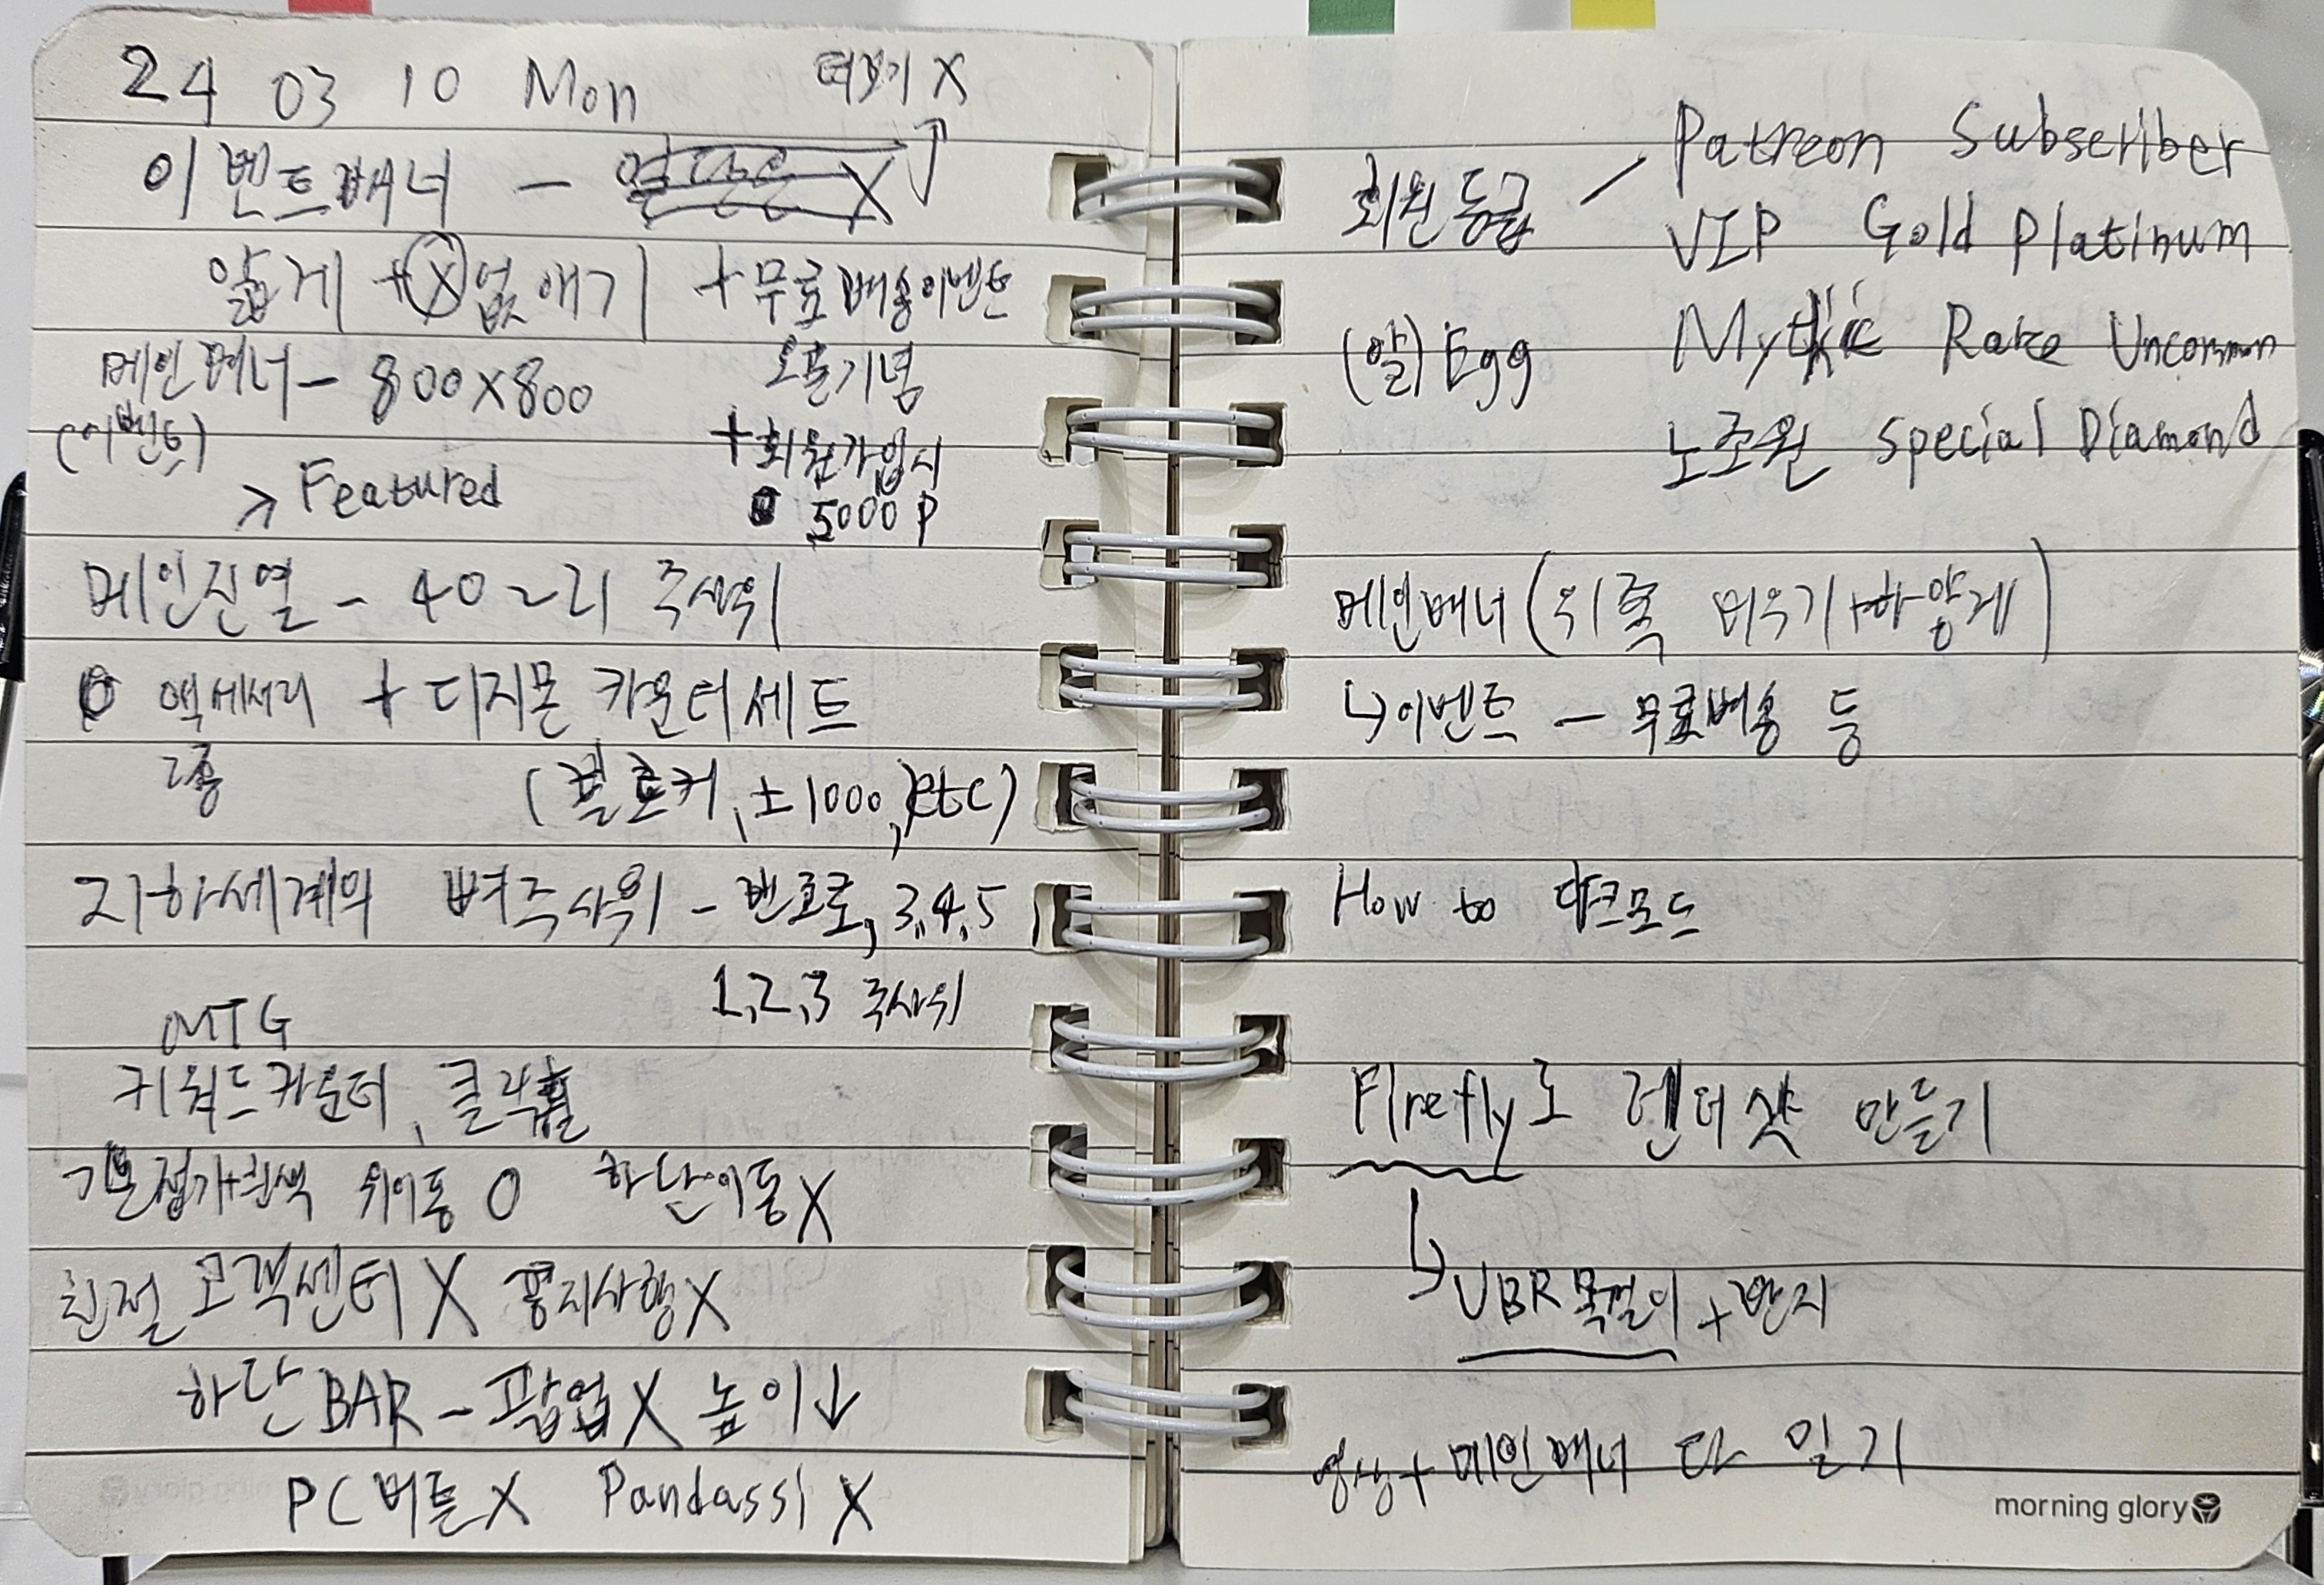 24 03 10 Mon 더보기 X
이벤트배너 - X
얇게 + X 없애기 + 무료배송이벤트
메인배너 - 800x800 오픈기념
(이벤트) + 회원가입시
> Featured 5000P
메인진열 - 40mm 주사위
액세서리 + 디지몬 카운터세트
2종 (블로커, ±1000, etc)
지하세계의 뼈주사위 - 번호로, 3,4,5
1,2,3 주사위
MTG
키워드카운터, 클락휠
기본접기+흰색 위이동 O 하단이동 X
친절 고객센터 X 공지사항 X
하단BAR - 팝업 X 높이↓
PC버튼 X Pandassi X
회원등급 / Patreon Subscriber
VIP Gold Platinum
(알) Egg Mythic Rare Uncommon
노조원 special Diamond
메인배너 (위쪽 비우기+하얗게)
↳이벤트 - 무료배송 등
How to 다크모드
Firefly로 렌더샷 만들기
↳ UBR목걸이 + 반지
영상 + 메인배너 다 밀기
morning glory